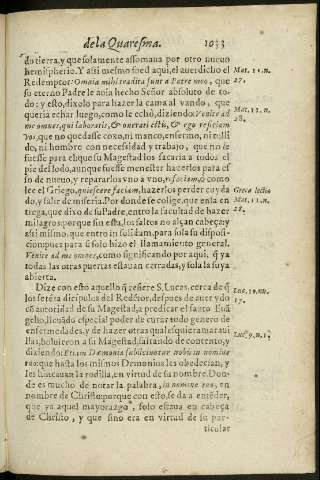 de la Quaresma. 1033
do tierra, y que solamente assomana por otro nueuo
hemispherio. Y assi mesmo sued aqui, el auer dicho el
Redemptor: Omnia mihi tradita sunt à Patre meo, que
su eterno Padre le auia hecho Señor absoluto de to-
do: y esto, dixolo para hazer la cama al vando, que
queria echar luego, como le echò, diziendo: Venite ad
me omnes, qui laboratis, & onerati estis, & ego reficiam
vos, que no quedasse coxo, ni manco, enfermo, ni tulli
do, ni hombre con necessidad y trabajo, que no le
fuesse para el que su Magestad los sacaria à todos el
pie del lodo, aunque fuesse menester hazerlos para es
so de nuevo, y repararlos vno a vno, reficiam, ò como
lee el Griego, quiescere faciam, hazerlos perder cuyda
do, y salir de miseria. Por donde se colige, que en la en
trega, que dixo de su Padre, entro la facultad de hazer
milagros: porque sin esta, los faltos no alçan cabeça: y
assi mismo, que entro in solidum, para sola su disposi-
cion: pues para si solo hizo el llamamiento general.
Venite ad me omnes, como significando por aqui, q̃ ya
todas las otras puertas estauan cerradas, y sola la suya
abierta.
Dize con esto aquello q̃ refiere S. Lucas, cerca de q̃
los setẽta dicipulos del Redẽtor, despues de auer ydo
cõ autoridad de su Magestad, a predicar el sacro Euã
gelio, lleuãdo especial poder de curar todo genero de
enfermedades, y de hazer otras qualesquiera maraui
llas, boluieron a su Magestad, saltando de contento, y
diziendo: Etiam Dæmonia subiiciuntur nobis in nomine
tuo: que hasta los mismos Demonios les obedecian, y
les hincauan la rodilla, en virtud de su nombre. Don-
de es mucho de notar la palabra, in nomine tuo, en
nombre de Christo: porque con esto se da a entẽder,
que ya aquel mayorazgo, solo estaua en cabeça
de Christo, y que sino era en virtud de su par-
ticular
Mat. 11. n.
27.
Mat. 11. n.
28.
Greca lectio
Mat. 11. n.
28.
Luc. 10. nu.
17.
Luc. 9. n. 1.